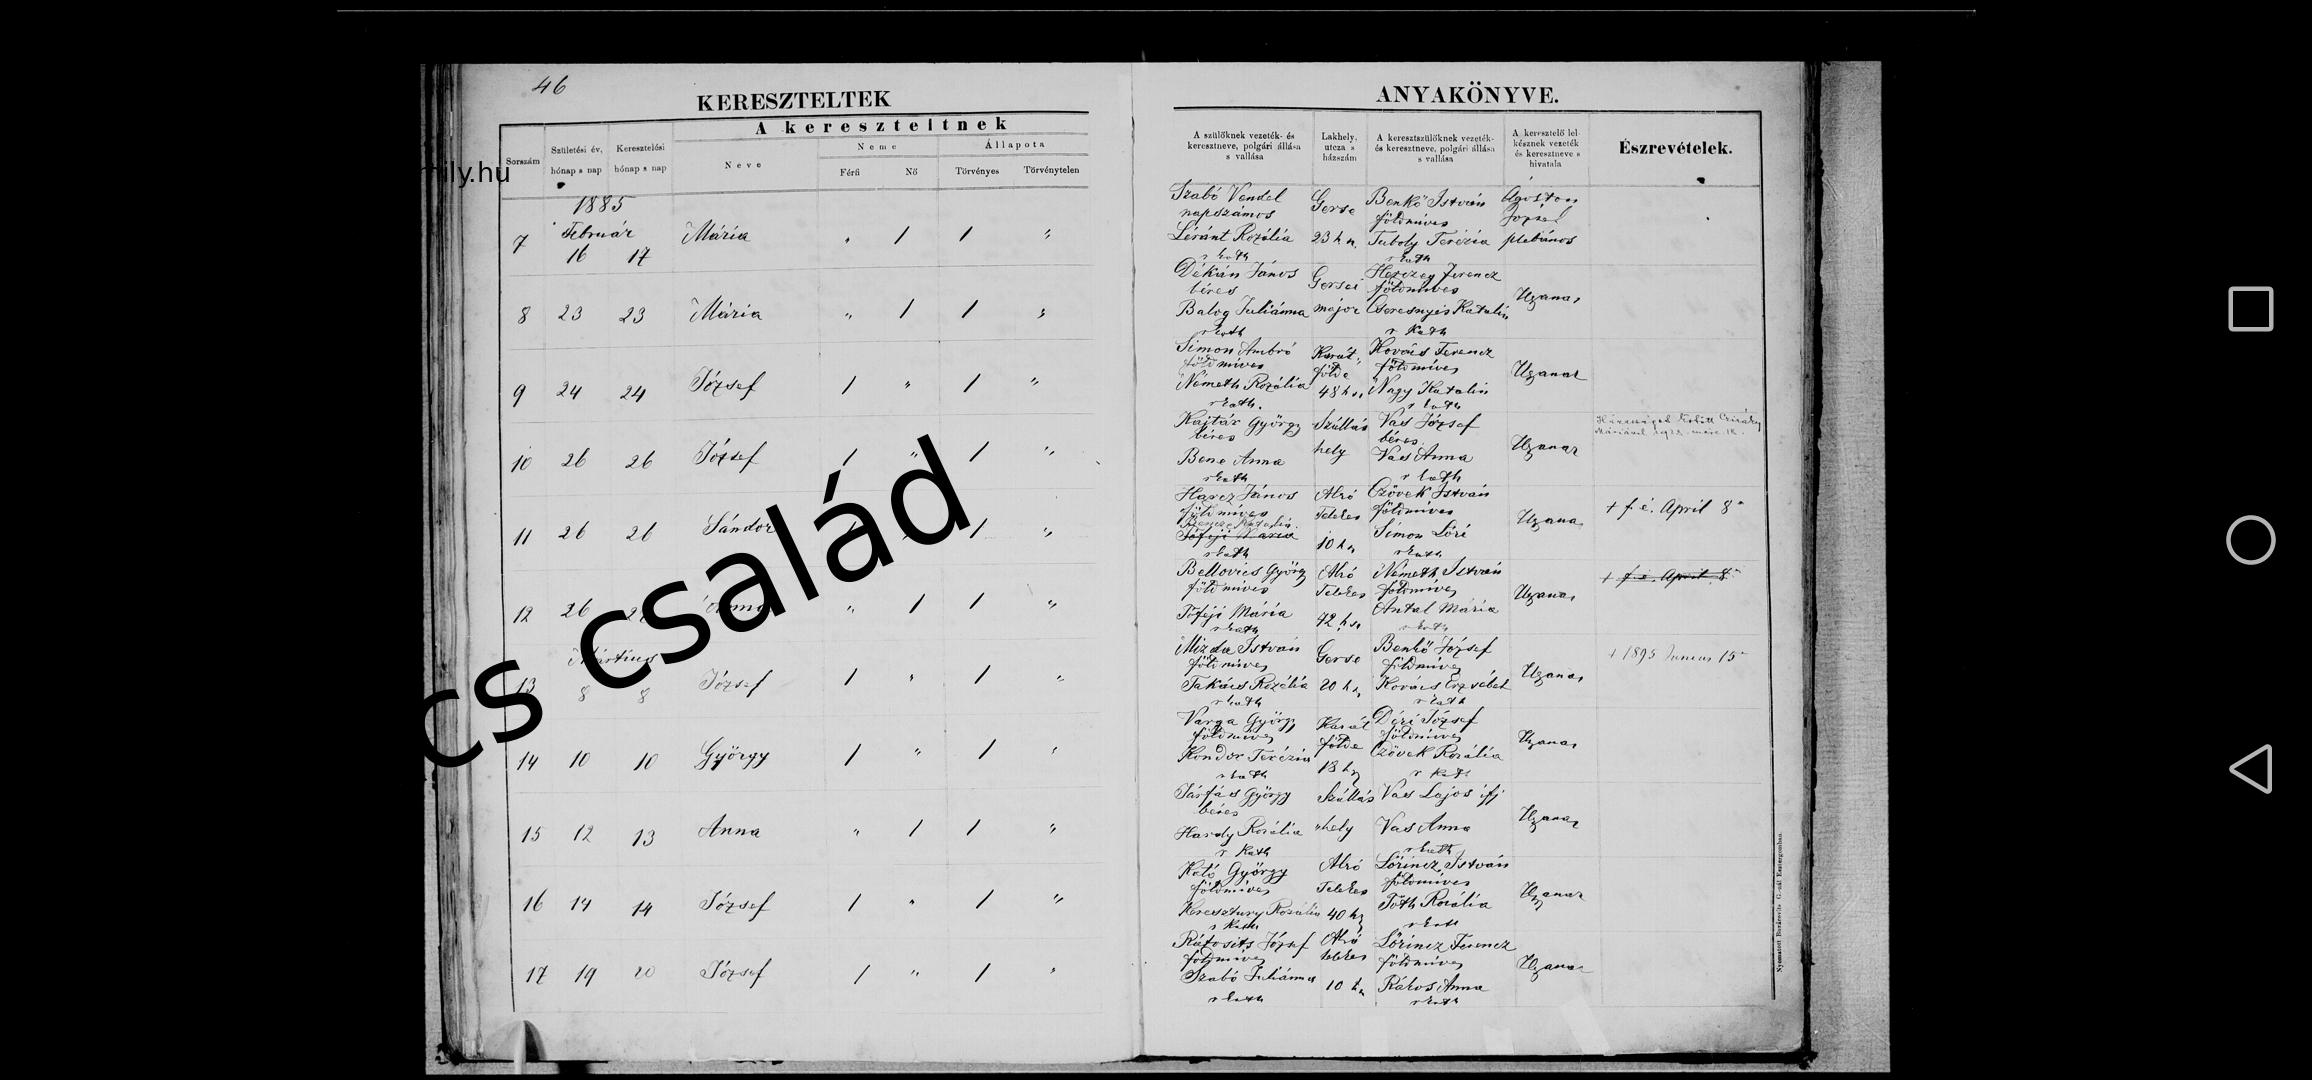 46
KERESZTELTEK
ANYAKÖNYVE.
A kereszteltnek
Sorszám
Születési év, hónap s nap
Keresztelési hónap s nap
Neve
Neme
Férfi
Nő
Állapota
Törvényes
Törvénytelen
A szülőknek vezeték- és keresztneve, polgári állása s vallása
Lakhely, utcza s házszám
A keresztszülőknek vezeték- és keresztneve, polgári állása s vallása
A keresztelő lelkésznek vezeték és keresztneve s hivatala
Észrevételek.
ily.hu
cs család
1885
Február
7 16 17 Mária „ / / „
Szabó Vendel napszámos
Léránt Rozália r kath
Gerse 23 h sz.
Benkő István földmives
Tuboly Terézia r kath
Ágoston József plébános
8 23 23 Mária „ / / „
Dékán János béres
Balog Juliánna r kath
Gersei major
Herczeg Ferencz földmives
Cseresnyés Katalin r Kath
Ugyanaz
9 24 24 József / „ / „
Simon Ambró földmives
Németh Rozália r kath.
Karátfölde 48 h sz.
Kovács Ferencz földmives
Nagy Katalin r kath
Ugyanaz
10 26 26 József / „ / „
Kajtár György béres
Bene Anna r kath
Szálláshely
Vas József béres
Vas Anna r kath
Ugyanaz
11 26 26 Sándor / / „
Harcz János földmives
Bencze Katalin.
Tófeji Mária r kath
Alsó Telekes 10 h sz
Czövek István földmives
Simon Lóri r kath
Ugyanaz
+ f. é. April 8
12 26 Anna „ / / „
Bellovics György földmives
Tófeji Mária r kath
Alsó Telekes 42 h sz
Németh István földmives
Antal Mária r kath
Ugyanaz
+ f. é. April 8
Mártius
13 8 8 József / „ / „
Mizda István földmives
Takács Rozália r kath
Gerse 20 h sz
Benkő József földmives
Kovács Erzsébet r kath
Ugyanaz
+ 1895 Junius 15
14 10 10 György / „ /
Varga György földmives
Kondor Terézia r kath
Karátfölde 13 h sz
Déri József földmives
Czövek Rozália r kath
Ugyanaz
15 12 13 Anna „ / / „
Farkas György béres
Hardy Rozália r kath
Szálláshely
Vas Lajos ifj
Vas Anna r kath
Ugyanaz
16 14 14 József / „ / „
Kató György földmives
Keresztury Rozália r kath
Alsó Telekes 40 h sz
Lőrincz István földmives
Tóth Rozália r kath
Ugyanaz
17 19 20 József / „ / „
Rátosits József földmives
Szabó Juliánna r kath
Alsó telekes 10 h sz
Lőrincz Ferencz földmives
Rákos Anna r kath
Ugyanaz